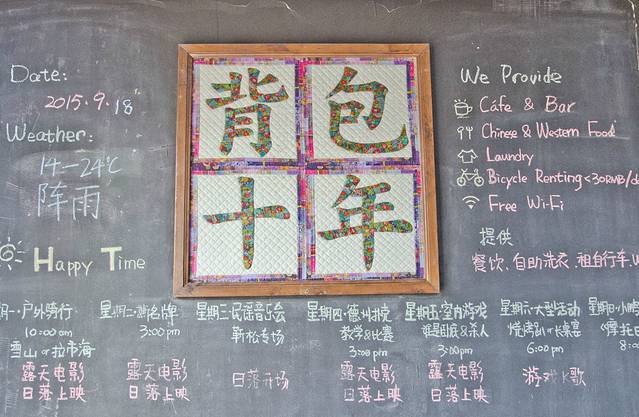 Date:
2015.9.18
Weather:
14—24℃
阵雨
Happy Time
背包
十年
We Provide
Cáfe & Bar
Chinese & Western Food
Laundry
Bicycle Renting <30RMB/d
Free Wi-Fi
提供
餐饮、自助洗衣、租自行车、W
期一·户外骑行
10:00am
雪山 or 拉市海
露天电影
日落上映
星期二
3:00pm
露天电影
日落上映
星期三·民谣音乐会
靳松专场
日落开场
星期四·德州扑克
教学&比赛
3:00pm
露天电影
日落上映
星期五·室内游戏
谁是卧底&杀人
3:00pm
露天电影
日落上映
星期六·大型活动
烧烤趴 or 长桌宴
6:00pm
游戏 K歌
星期日·小鹏
摩托
8:0